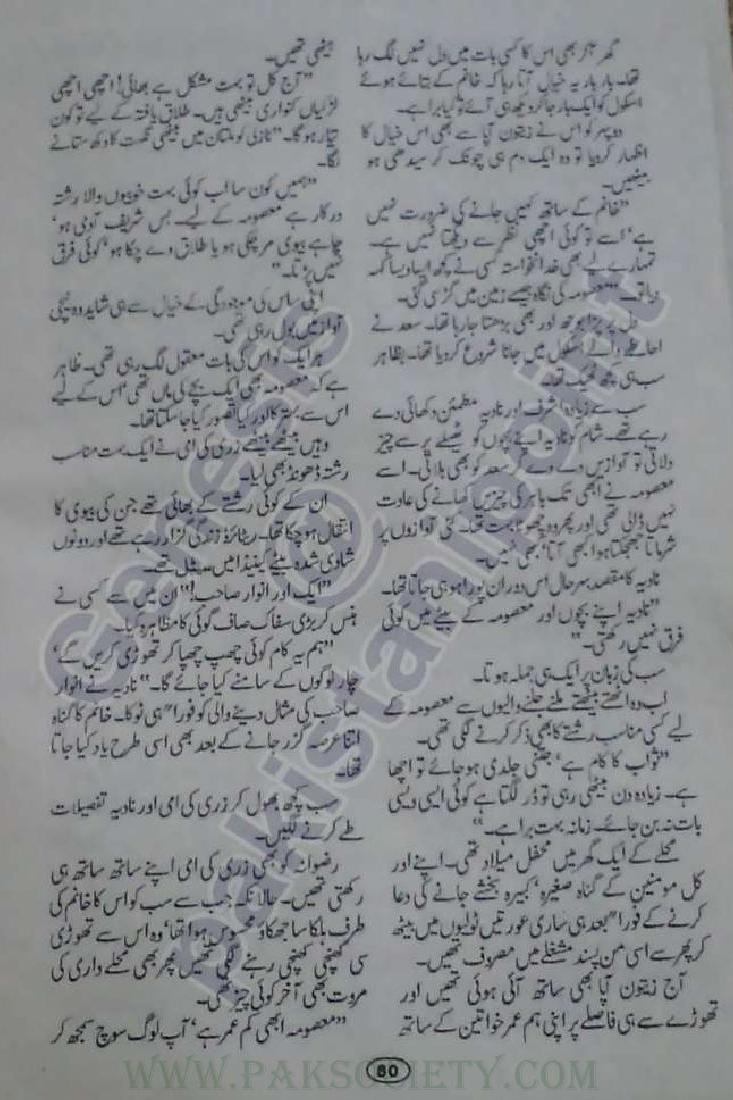 گھر آکر بھی اس کا کسی بات میں دل نہیں لگ رہا
تھا۔ بار بار یہ خیال آ رہا تھا کہ خانم کے بتائے ہوئے
اسکول کو ایک بار جا کر دیکھ ہی آئے تو کیا برا ہے۔
دوپہر کو اس نے زیتون آپا سے بھی اس خیال کا
اظہار کر دیا تو وہ ایک دم ہی چونک کر سیدھی ہو
بیٹھیں۔
"خانم کے ساتھ کہیں جانے کی ضرورت نہیں
ہے، اسے تو کوئی اچھی نظر سے دیکھتا نہیں ہے۔
تمہارے لیے بھی خدانخواستہ کسی نے کچھ ایسا ویسا کہہ
دیا تو۔" معصومہ کی نگاہ جیسے زمین میں گڑ سی گئی۔
دل پر پڑا بوجھ اور بھی بڑھتا جا رہا تھا۔ سعد نے
احاطے والے اسکول میں جانا شروع کر دیا تھا۔ بظاہر
سب ہی کچھ ٹھیک تھا۔
سب سے زیادہ اشرف اور نادیہ مطمئن دکھائی دے
رہے تھے۔ شام کو نادیہ اپنے بچوں کو ٹھیلے پر سے چیز
دلاتی تو آوازیں دے دے کر سعد کو بھی بلاتی۔ اسے
معصومہ نے ابھی تک باہر کی چیزیں کھانے کی عادت
نہیں ڈالی تھی اور پھر وہ چھوٹا بہت تھا۔ کئی آوازوں پر
شرماتا جھجکتا ہوا کبھی آتا، کبھی نہیں۔
نادیہ کا مقصد بہرحال اس دوران پورا ہو ہی جاتا تھا۔
"نادیہ اپنے بچوں اور معصومہ کے بیٹے میں کوئی
فرق نہیں رکھتی۔"
سب کی زبان پر ایک ہی جملہ ہوتا۔
اب وہ اٹھتے بیٹھتے ملنے جلنے والیوں سے معصومہ کے
لیے کسی مناسب رشتے کا بھی ذکر کرنے لگی تھی۔
"ثواب کا کام ہے، جتنی جلدی ہو جائے تو اچھا
ہے۔ زیادہ دن بیٹھی رہی تو ڈر لگتا ہے کوئی ایسی ویسی
بات نہ بن جائے۔ زمانہ بہت برا ہے۔"
محلے کے ایک گھر میں محفل میلاد تھی۔ اپنے اور
کل مومنین کے گناہ صغیرہ، کبیرہ بخشے جانے کی دعا
کرنے کے فوراً بعد ہی ساری عورتیں ٹولیوں میں بیٹھ
کر پھر سے اسی من پسند مشغلے میں مصروف تھیں۔
آج زیتون آپا بھی ساتھ آئی ہوئی تھیں اور
تھوڑے سے ہی فاصلے پر اپنی ہم عمر خواتین کے ساتھ
بیٹھی تھیں۔
"آج کل تو بہت مشکل ہے بھائی! اچھی اچھی
لڑکیاں کنواری بیٹھی ہیں۔ طلاق یافتہ کے لیے تو کون
تیار ہو گا۔" نازلی کو ملتان میں بیٹھی نگہت کا دکھ ستانے
لگا۔
"ہمیں کون سا اب کوئی بہت خوبیوں والا رشتہ
درکار ہے معصومہ کے لیے۔ بس شریف آدمی ہو،
چاہے بیوی مر چکی ہو یا طلاق دے چکا ہو، کوئی فرق
نہیں پڑتا۔"
اپنی ساس کی موجودگی کے خیال سے ہی شاید وہ نیچی
آواز میں بول رہی تھی۔
ہر ایک کو اس کی بات معقول لگ رہی تھی۔ ظاہر
ہے کہ معصومہ بھی ایک بچے کی ماں تھی، اس کے لیے
اس سے بہتر کا اور کیا تصور کیا جا سکتا تھا۔
وہیں بیٹھے بیٹھے زری کی امی نے ایک بہت مناسب
رشتہ ڈھونڈ بھی لیا۔
ان کے کوئی رشتے کے بھائی تھے جن کی بیوی کا
انتقال ہو چکا تھا۔ ریٹائرڈ زندگی گزار رہے تھے اور دونوں
شادی شدہ بیٹے کینیڈا میں سیٹل تھے۔
"ایک اور انوار صاحب!" ان میں سے کسی نے
ہنس کر بڑی سفاک صاف گوئی کا مظاہرہ کیا۔
"ہم یہ کام کوئی چھپ چھپا کر تھوڑی کریں گے،
چار لوگوں کے سامنے کیا جائے گا۔" نادیہ نے انوار
صاحب کی مثال دینے والی کو فوراً ہی ٹوکا۔ خانم کا گناہ
اتنا عرصہ گزر جانے کے بعد بھی اسی طرح یاد کیا جاتا
تھا۔
سب کچھ بھول کر زری کی امی اور نادیہ تفصیلات
طے کرنے لگیں۔
رضوانہ کو بھی زری کی امی اپنے ساتھ ساتھ ہی
رکھتی تھیں۔ حالانکہ جب سے سب کو اس کا خانم کی
طرف ہلکا سا جھکاؤ محسوس ہوا تھا، وہ اس سے تھوڑی
سی کھنچی کھنچی رہنے لگی تھیں پھر بھی محلے داری کی
مروت بھی آخر کوئی چیز تھی۔
"معصومہ ابھی کم عمر ہے، آپ لوگ سوچ سمجھ کر
80
Genesis
©
pakistanipoint
WWW.PAKSOCIETY.COM